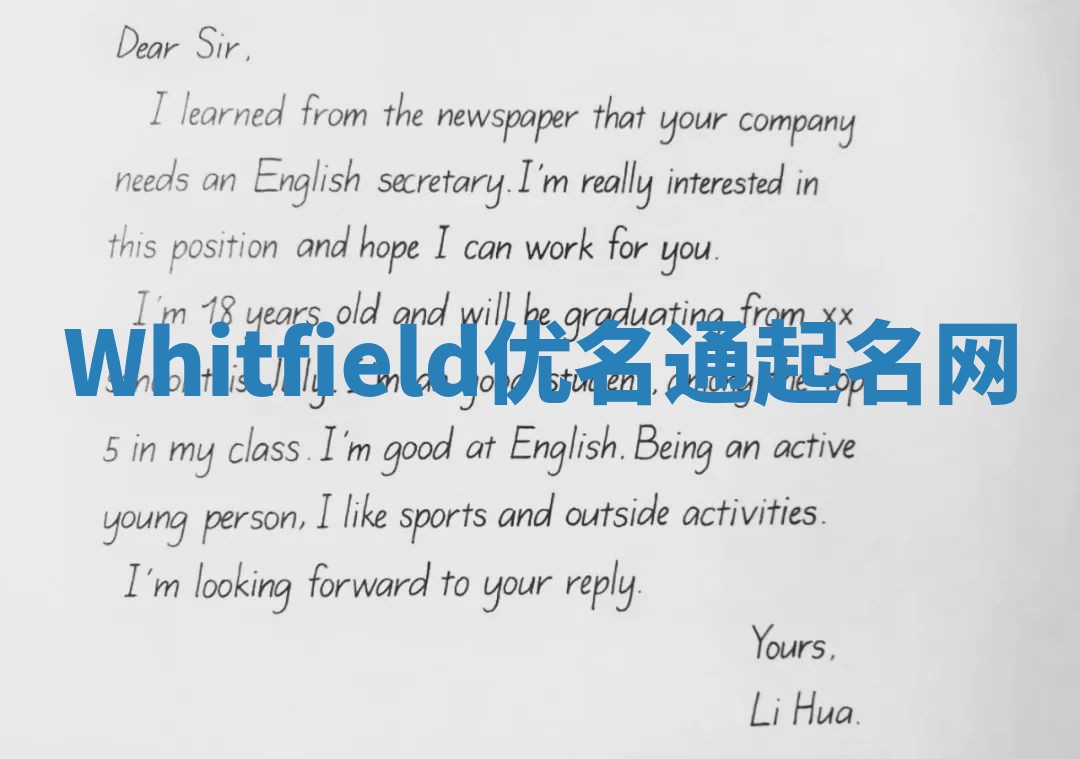 Dear Sir,
I learned from the newspaper that your company
needs an English secretary. I'm really interested in
this position and hope I can work for you.
I'm 18 years old and will be graduating from xx
Whitfield优名通起名网
school this July. I'm a good student, among the top
5 in my class. I'm good at English. Being an active
young person, I like sports and outside activities.
I'm looking forward to your reply.
Yours,
Li Hua.